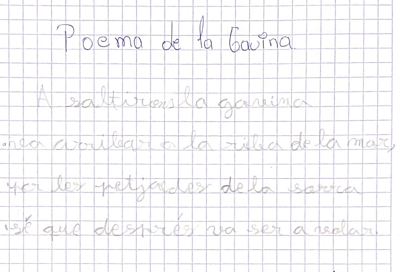 Poema de la Gavina
A saltirons la gavina
va arribar a la riba de la mar,
per les petjades de la sorra
sé que després va ser a volar.